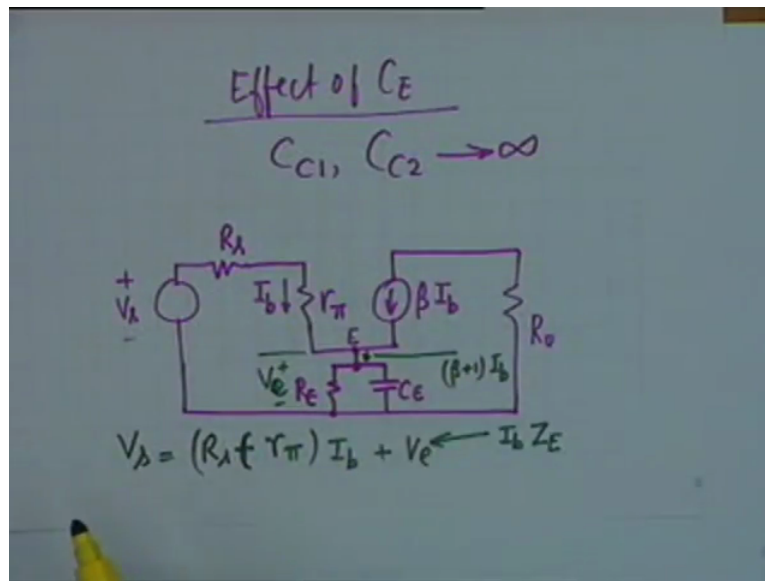 Effect of C_E
C_C1, C_C2 → ∞
R_s
+
V_s
-
I_b ↓
r_π
↓
βI_b
R_o
E
V_e
+
-
R_E
C_E
(β+1) I_b
V_s = (R_s + r_π) I_b + V_e ← I_b Z_E